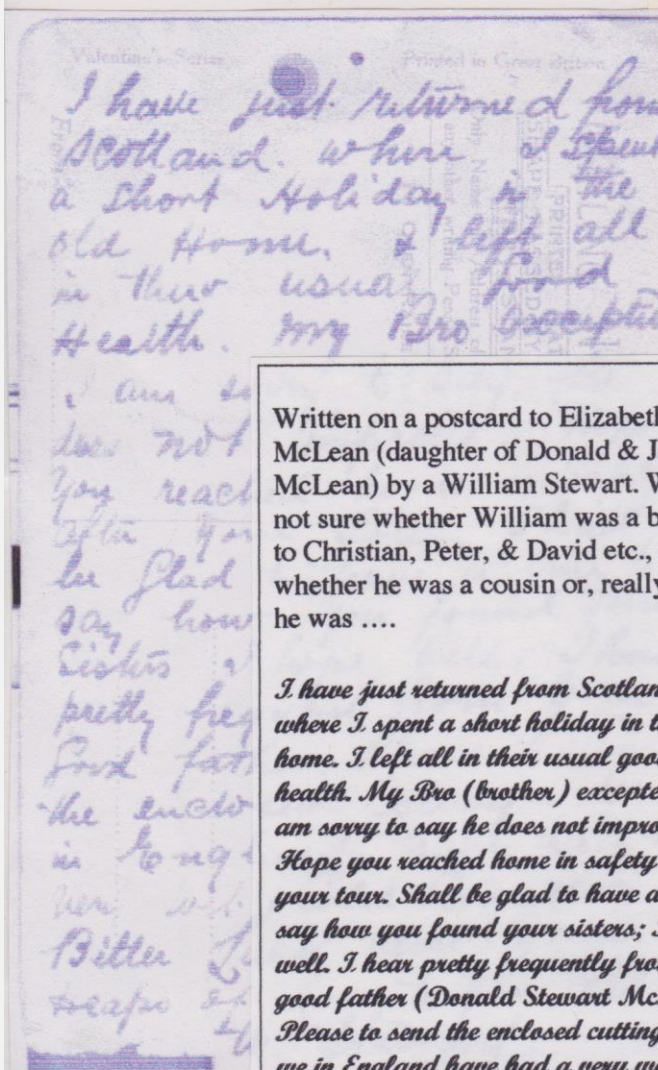 Valentine's Series Printed in Great Britain
I have just returned from
Scotland. where I spent
a short Holiday in the
old Home. I left all
in their usual Good
Health. My Bro excepted
I am
does not
You reach
after your
be Glad
say how
Sisters
pretty freq
Good fath
the enclo
in Eng
very wet
Bitter
Written on a postcard to Elizabeth
McLean (daughter of Donald & J
McLean) by a William Stewart. W
not sure whether William was a b
to Christian, Peter, & David etc.,
whether he was a cousin or, really
he was ….
I have just returned from Scotlan
where I spent a short holiday in t
home. I left all in their usual goo
health. My Bro (brother) excepte
am sorry to say he does not impro
Hope you reached home in safety
your tour. Shall be glad to have a
say how you found your sisters; I
well. I hear pretty frequently fro
good father (Donald Stewart Mc
Please to send the enclosed cutting
we in England have had a very we